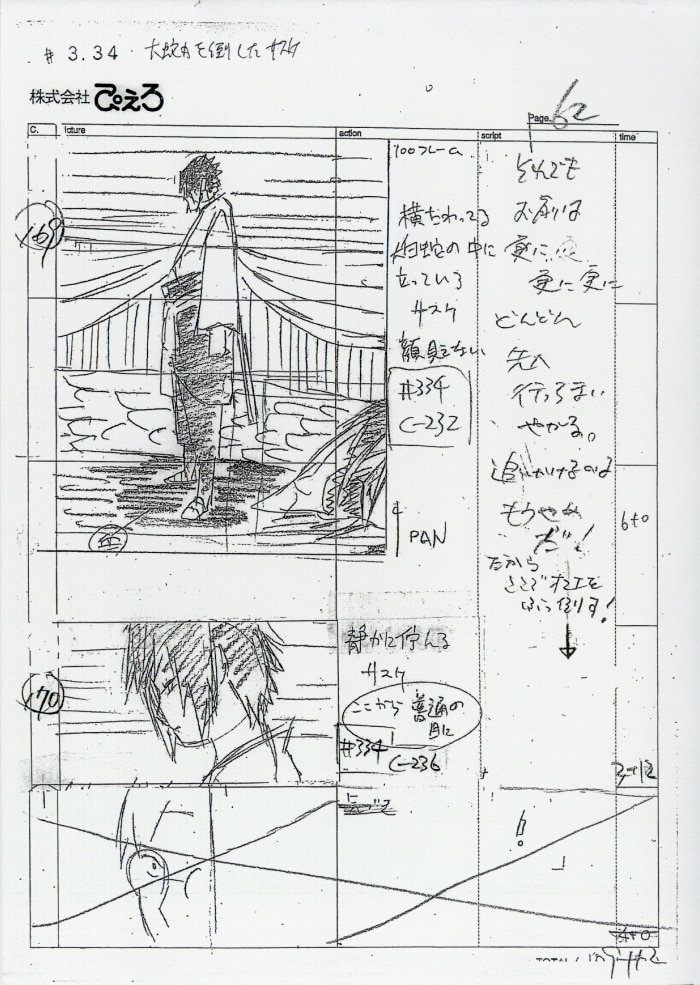 # 3.34 大蛇丸を倒したサスケ
株式会社 ぴえろ
Page. 62
C.
icture
action
script
time
169
100フレーム
横たわってる
白蛇の中に
立っている
サスケ
顔見えない
#334
C-232
PAN
それでも
お前は
更に
更に更に
どんどん
先へ
行っちまい
やがる。
追いかけるのは
もうやめ
だ!
だから
ここでオレを
ぶっ倒す!
6+0
170
静かに佇んる
サスケ
ここから 普通の
目に
#334
C-236
3+12
!